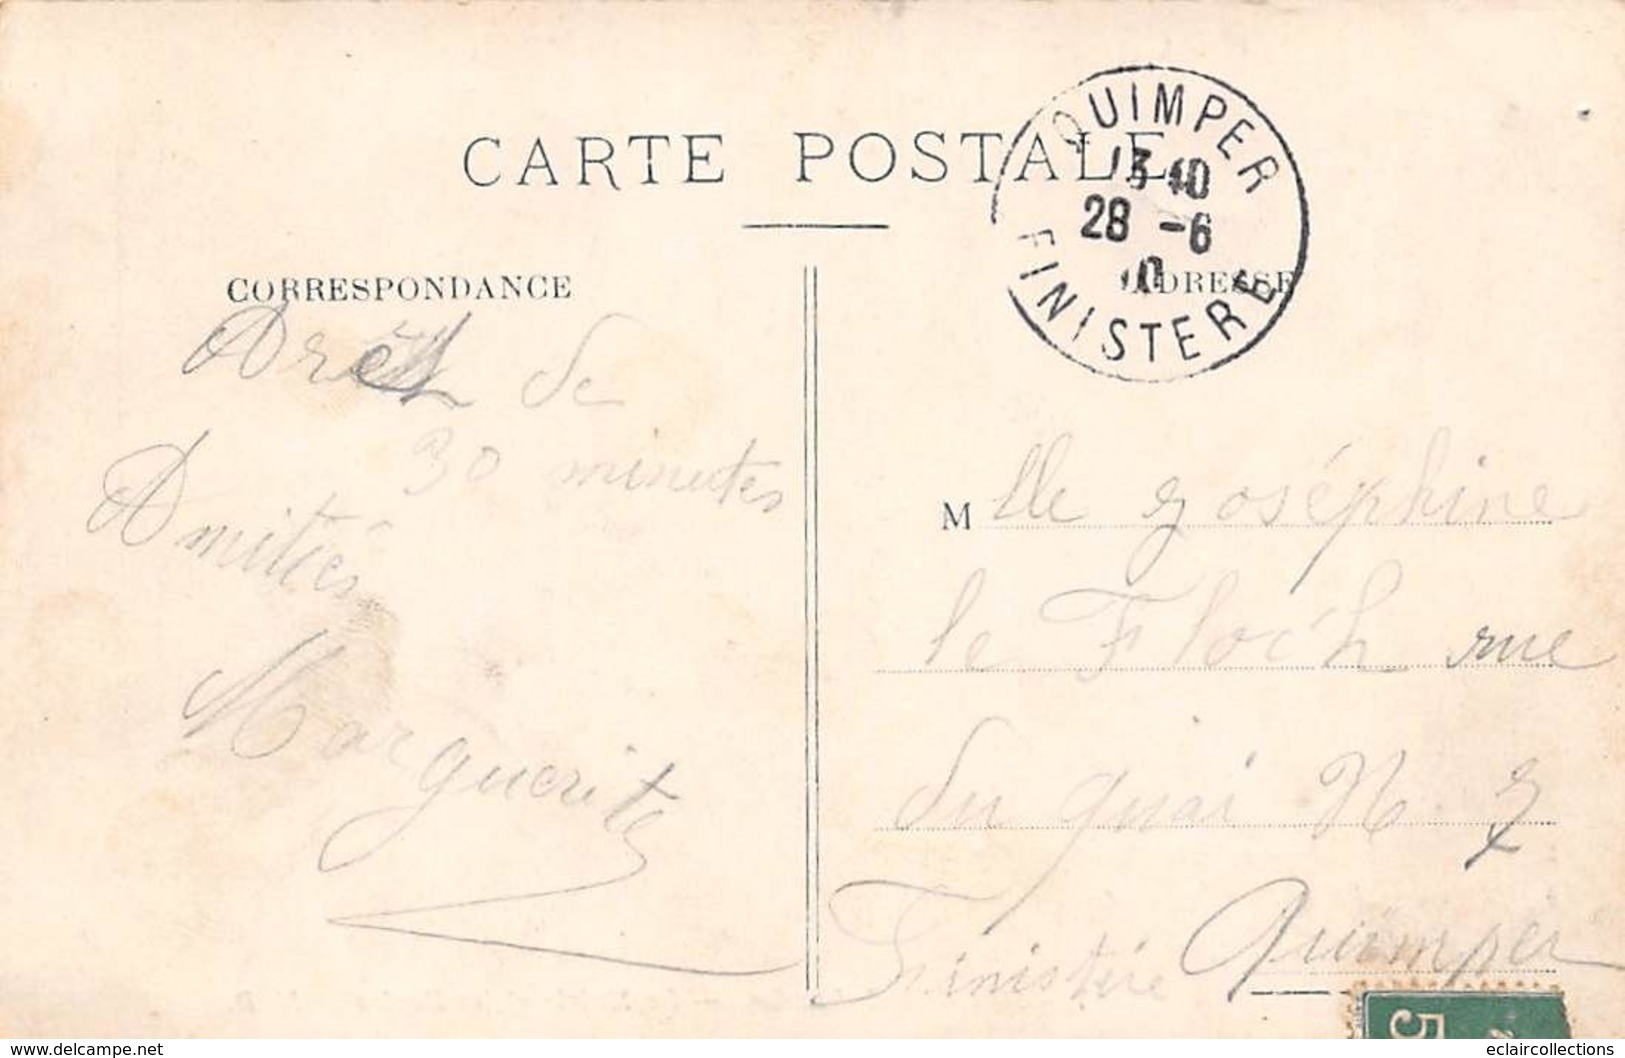 CARTE POSTALE
QUIMPER
13 10
28 -6
10
FINISTERE
CORRESPONDANCE
ADRESSE
Arêt de
30 minutes
Amitiés
Marguerite
Mlle Joséphine
le Floc'h rue
du quai N. 7
Quimper
Finistère
5
www.delcampe.net
eclaircollections